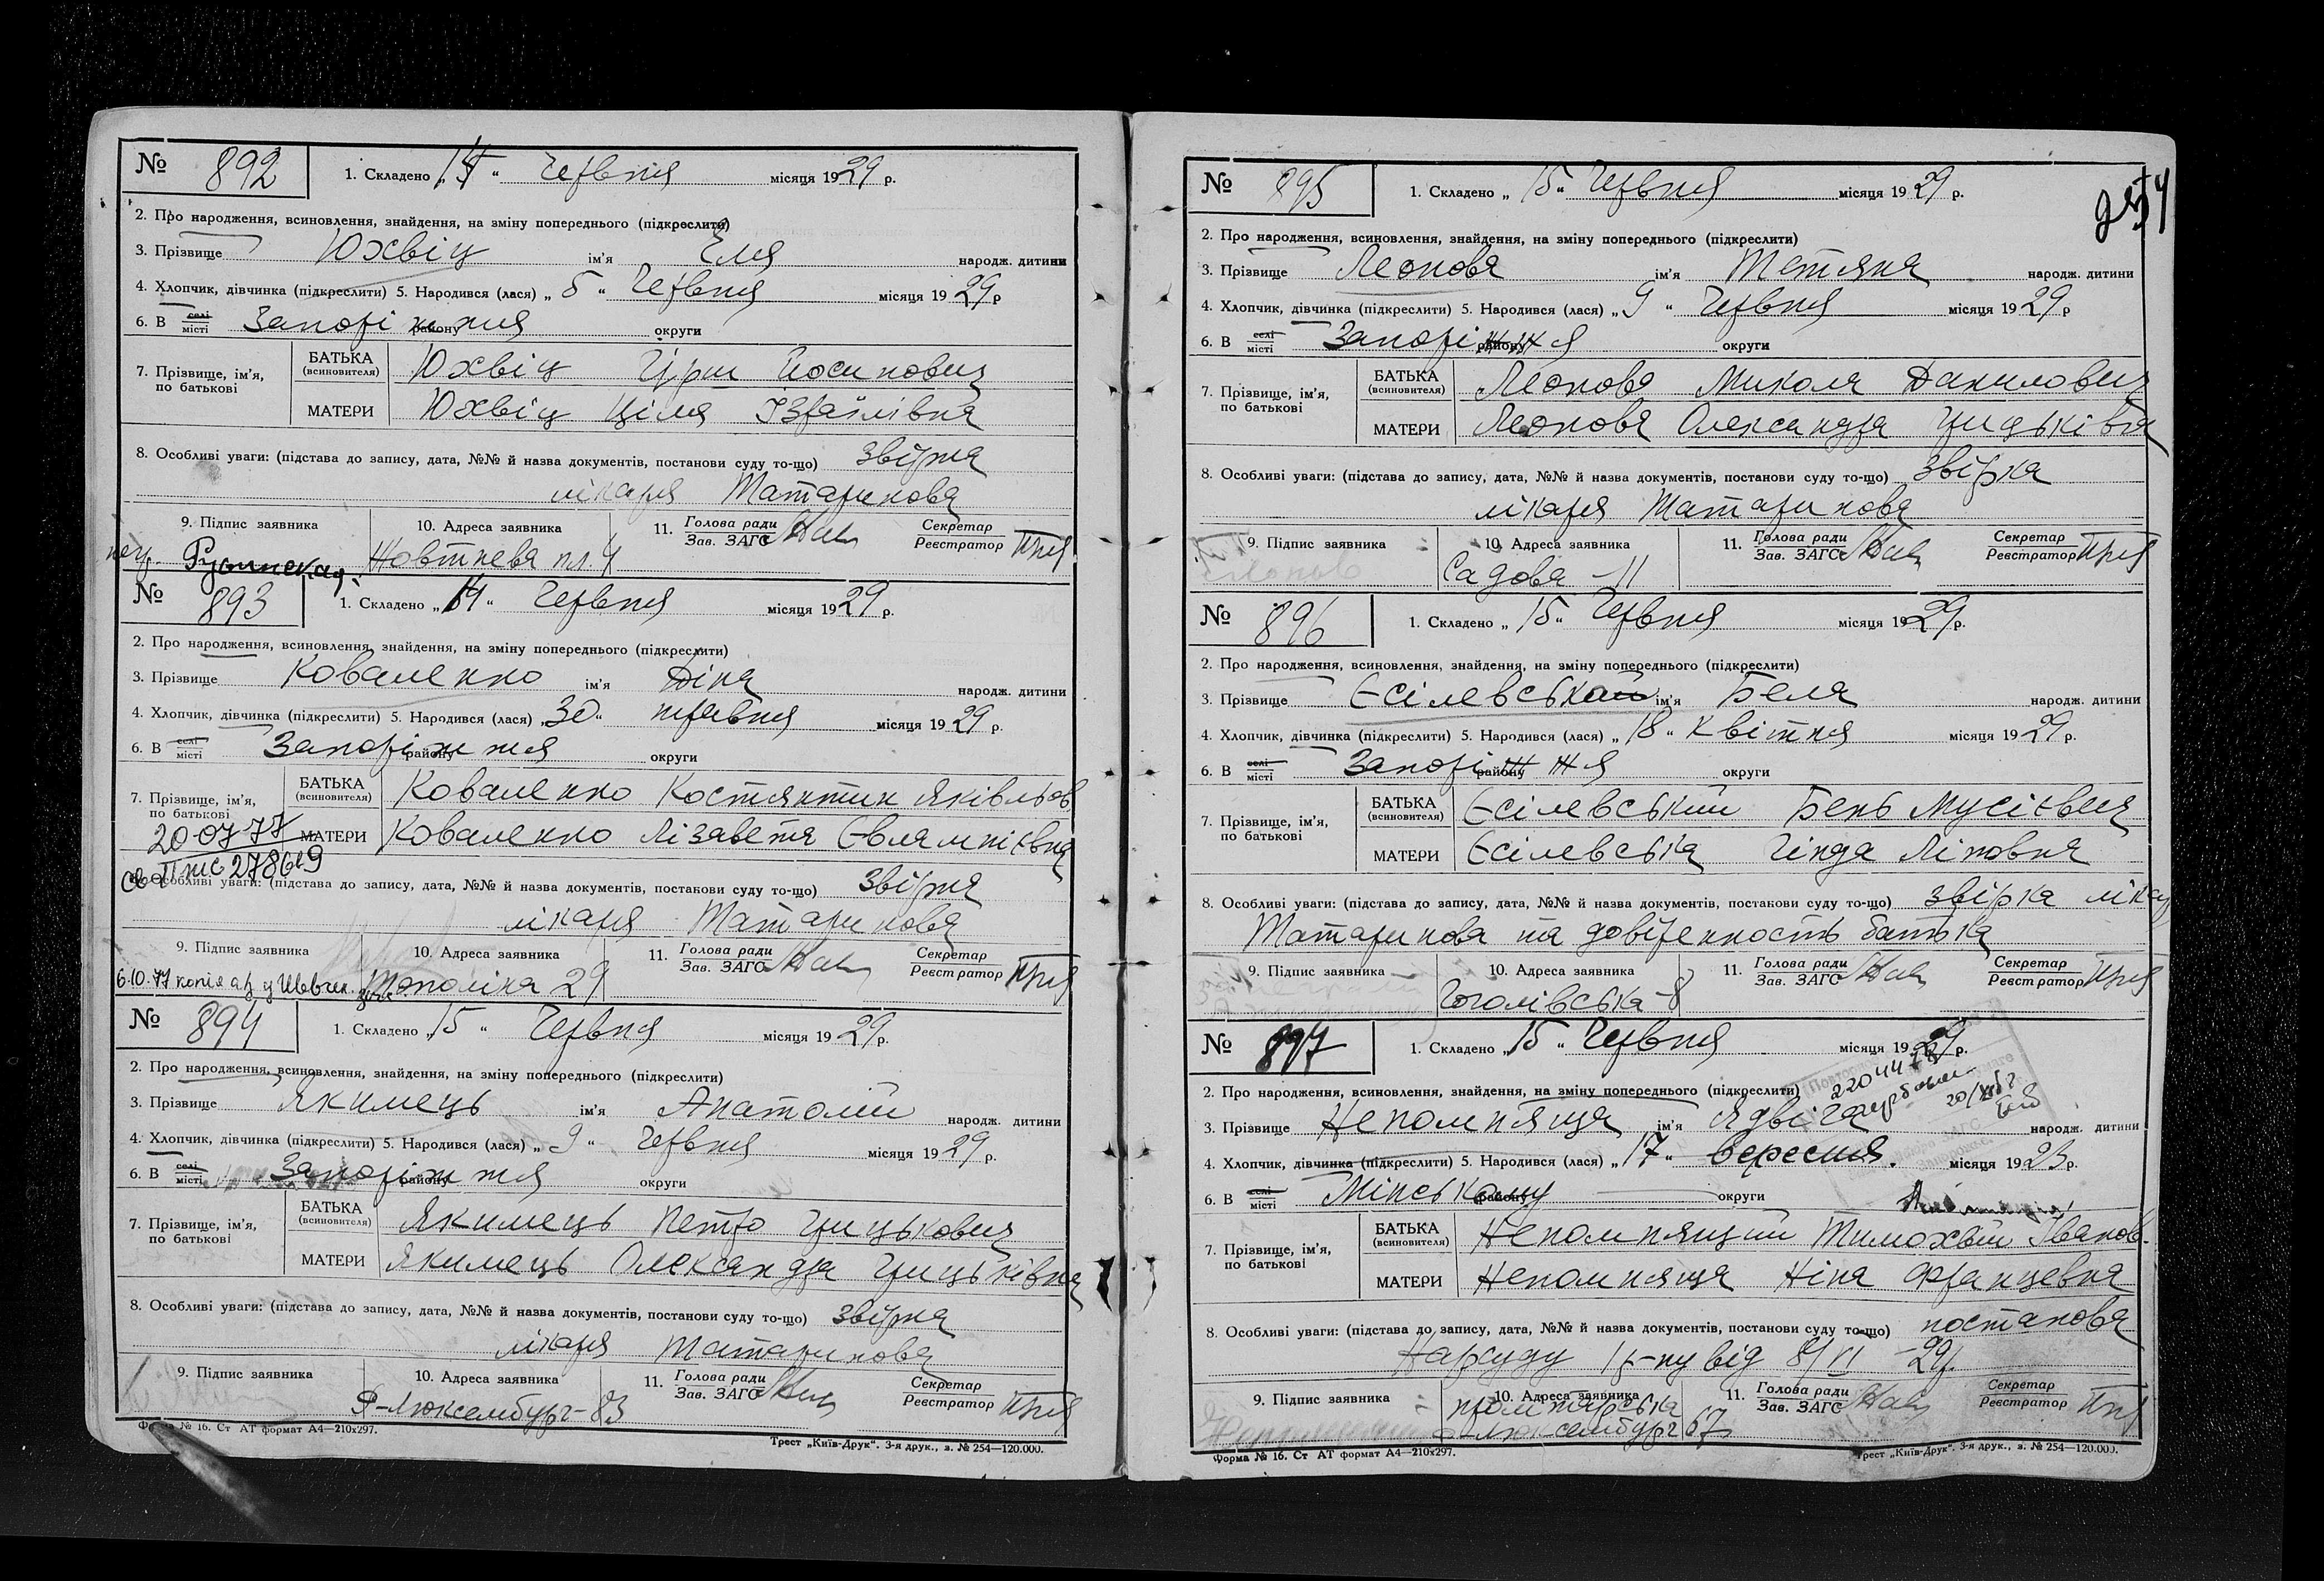 № 892 1. Складено „ 14 “ Червня місяця 1929 р.
2. Про народження, всиновлення, знайдення, на зміну попереднього (підкреслити)
3. Прізвище Юхвіц ім’я Еля народж. дитини
4. Хлопчик, дівчинка (підкреслити) 5. Народився (лася) „ 5 “ Червня місяця 1929 р
6. В селі місті Запоріжжя району округи
7. Прізвище, ім’я, по батькові
БАТЬКА (всиновителя) Юхвіц Гірш Йосипович
МАТЕРИ Юхвіц Ціля Ізраїлівна
8. Особливі уваги: (підстава до запису, дата, №№ й назва документів, постанови суду то-що) звірка
лікаря Татаринова
9. Підпис заявника 10. Адреса заявника 11. Голова ради Зав. ЗАГС Секретар Реєстратор
Жовтнева пл. 4
№ 893 1. Складено „ 14 “ Червня місяця 1929 р.
2. Про народження, всиновлення, знайдення, на зміну попереднього (підкреслити)
3. Прізвище Коваленко ім’я Діна народж. дитини
4. Хлопчик, дівчинка (підкреслити) 5. Народився (лася) „ 30 “ травня місяця 1929 р.
6. В селі місті Запоріжжя району округи
7. Прізвище, ім’я, по батькові
БАТЬКА (всиновителя) Коваленко Костянтин Яківльов.
20-07-77
МАТЕРИ Коваленко Лізавета Євлампієвна
278619
8. Особливі уваги: (підстава до запису, дата, №№ й назва документів, постанови суду то-що) звірка
лікаря Татаринова
9. Підпис заявника 10. Адреса заявника 11. Голова ради Зав. ЗАГС Секретар Реєстратор
6.10.77 копія Тополіна 29
№ 894 1. Складено „ 15 “ Червня місяця 1929 р.
2. Про народження, всиновлення, знайдення, на зміну попереднього (підкреслити)
3. Прізвище Якимець ім’я Анатолій народж. дитини
4. Хлопчик, дівчинка (підкреслити) 5. Народився (лася) „ 9 “ Червня місяця 1929 р.
6. В селі місті Запоріжжя району округи
7. Прізвище, ім’я, по батькові
БАТЬКА (всиновителя) Якимець Петро Грицькович
МАТЕРИ Якимець Олександра Грицьківна
8. Особливі уваги: (підстава до запису, дата, №№ й назва документів, постанови суду то-що) звірка
лікаря Татаринова
9. Підпис заявника 10. Адреса заявника 11. Голова ради Зав. ЗАГС Секретар Реєстратор
Р-Люксембург-83
Форма № 16. Ст АТ формат А4—210х297.
Трест „Київ-Друк“. 3-я друк., з. № 254—120.000.
№ 895 1. Складено „ 15 “ Червня місяця 1929 р.
2. Про народження, всиновлення, знайдення, на зміну попереднього (підкреслити)
3. Прізвище Леонова ім’я Тетяна народж. дитини
4. Хлопчик, дівчинка (підкреслити) 5. Народився (лася) „ 9 “ Червня місяця 1929 р
6. В селі місті Запоріжжя району округи
7. Прізвище, ім’я, по батькові
БАТЬКА (всиновителя) Леонова Микола Данилович
МАТЕРИ Леонова Олександра Грицьківна
8. Особливі уваги: (підстава до запису, дата, №№ й назва документів, постанови суду то-що) звірка
лікаря Татаринова
9. Підпис заявника 10. Адреса заявника 11. Голова ради Зав. ЗАГС Секретар Реєстратор
Садова -11
№ 896 1. Складено „ 15 “ Червня місяця 1929 р.
2. Про народження, всиновлення, знайдення, на зміну попереднього (підкреслити)
3. Прізвище Єсілевська ім’я Беля народж. дитини
4. Хлопчик, дівчинка (підкреслити) 5. Народився (лася) „ 18 “ Квітня місяця 1929 р.
6. В селі місті Запоріжжя району округи
7. Прізвище, ім’я, по батькові
БАТЬКА (всиновителя) Єсілевський Бень Мусієвич
МАТЕРИ Єсілевська Гінда Ліповна
8. Особливі уваги: (підстава до запису, дата, №№ й назва документів, постанови суду то-що) звірка лікар
Татаринова та довіренность батька
9. Підпис заявника 10. Адреса заявника 11. Голова ради Зав. ЗАГС Секретар Реєстратор
Гоголівська-8
№ 897 1. Складено „ 15 “ Червня місяця 1929 р.
2. Про народження, всиновлення, знайдення, на зміну попереднього (підкреслити)
3. Прізвище Непомняща ім’я Ядвіга народж. дитини
4. Хлопчик, дівчинка (підкреслити) 5. Народився (лася) „ 17 “ вересня місяця 1923 р.
6. В селі місті Мінському району округи
7. Прізвище, ім’я, по батькові
БАТЬКА (всиновителя) Непомнящий Тимохвій Іванов.
МАТЕРИ Непомняща Ніна Францевна
8. Особливі уваги: (підстава до запису, дата, №№ й назва документів, постанови суду то-що) постанова
Нарсуду 1 р-ну від 8/VI -29р.
9. Підпис заявника 10. Адреса заявника 11. Голова ради Зав. ЗАГС Секретар Реєстратор
Люксембург 67
Форма № 16. Ст АТ формат А4—210х297.
Трест „Київ-Друк“. 3-я друк., з. № 254—120.000.